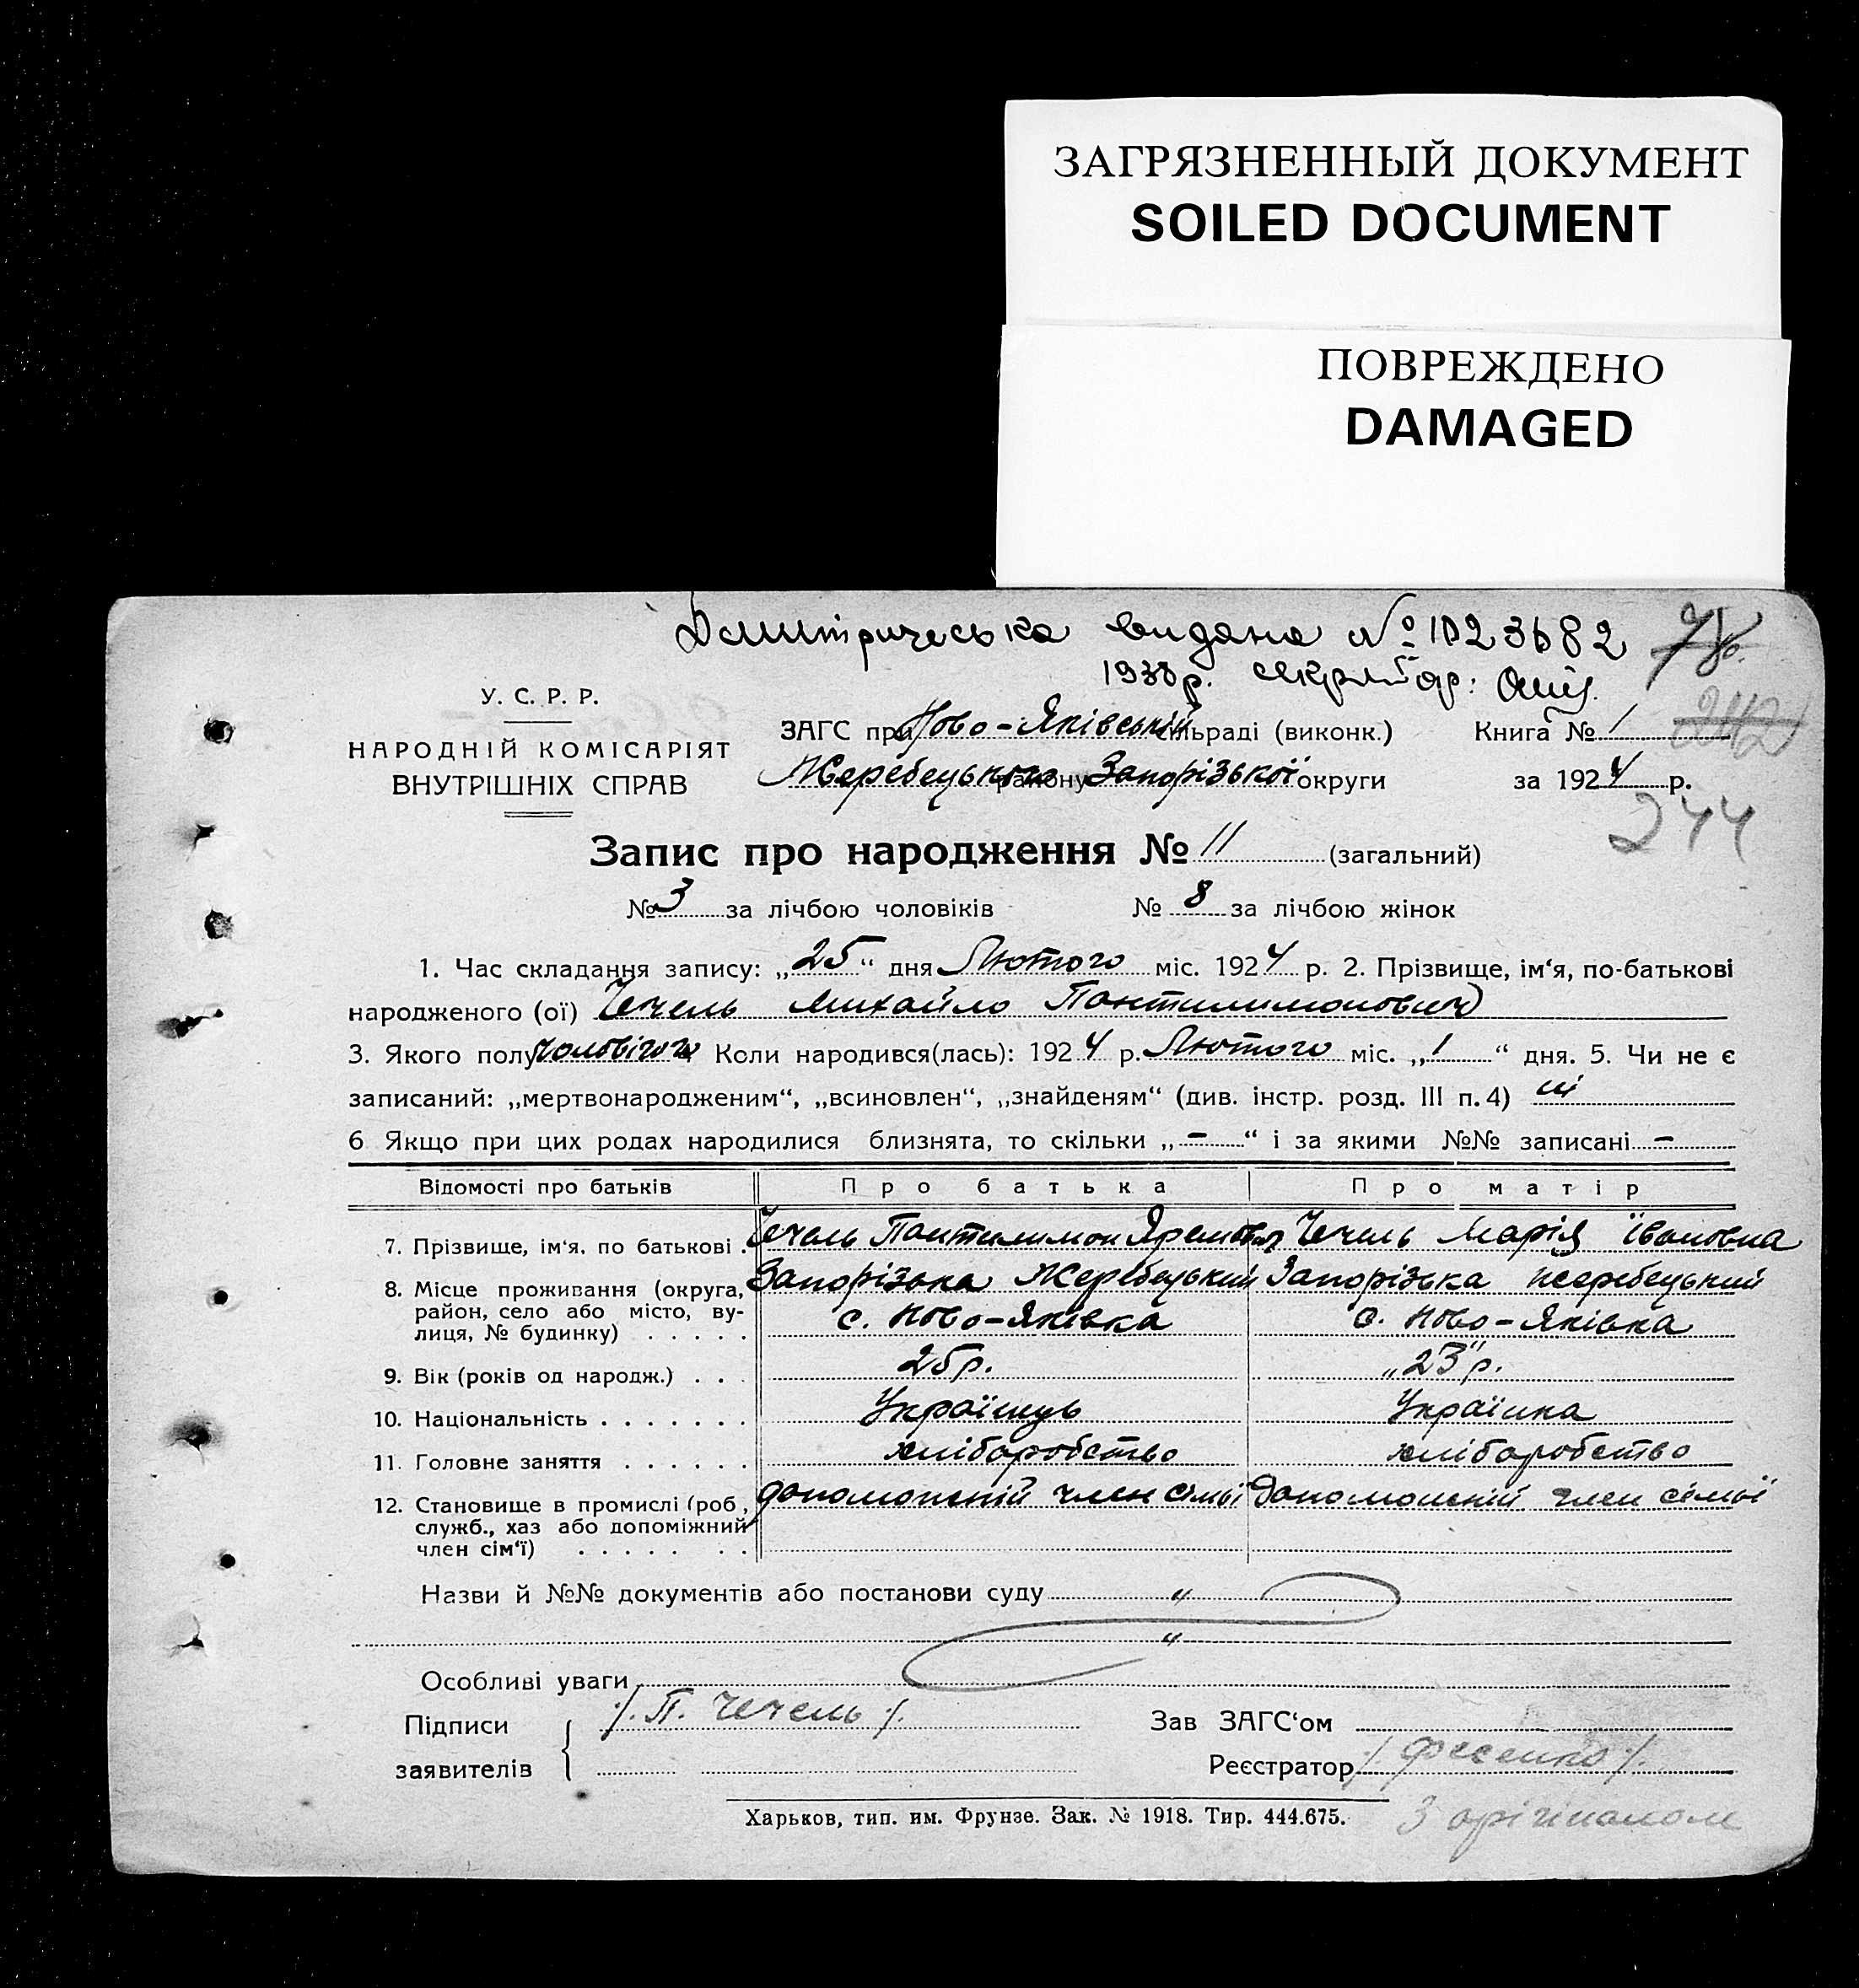 ЗАГРЯЗНЕННЫЙ ДОКУМЕНТ
SOILED DOCUMENT
ПОВРЕЖДЕНО
DAMAGED
видана № 1023682
1938 р.
У. С. Р. Р.
НАРОДНІЙ КОМІСАРІЯТ
ВНУТРІШНІХ СПРАВ
ЗАГС при Ново-Яківській сільраді (виконк.) Книга № 1 242
Жеребецького району Запорізької округи за 1924 р.
244
Запис про народження № 11 (загальний)
№ 3 за лічбою чоловіків № 8 за лічбою жінок
1. Час складання запису: „25“ дня Лютого міс. 1924 р. 2. Прізвище, ім‘я, по-батькові
народженого (ої) Чечель Михайло Пантилимонович
3. Якого полу чоловічого Коли народився(лась): 1924 р. Лютого міс. „1“ дня. 5. Чи не є
записаний: „мертвонародженим“, „всиновлен“, „знайденям“ (див. інстр. розд. III п. 4) ні
6 Якщо при цих родах народилися близнята, то скільки „-“ і за якими №№ записані -
Відомості про батьків Про батька Про матір
7. Прізвище, ім‘я. по батькові . Чечель Пантилимон Яремович Чечель Марія Івановна
8. Місце проживання (округа, Запорізька Жеребецький Запорізька Жеребецький
район, село або місто, ву-
лиця, № будинку) . . . . . с. Ново-Яківка с. Ново-Яківка
9. Вік (років од народж.) . . . 25 р. „23“ р.
10. Національність . . . . . . . Українець Українка
11. Головне заняття . . . . . . хліборобство хліборобство
12. Становище в промислі (роб, допоможній член сімьї допоможній член сімьї
служб., хаз або допоміжний
член сім‘ї) . . . . . . .
Назви й №№ документів або постанови суду "
"
Особливі уваги
Підписи /. П. Чечель /. Зав ЗАГС‘ом
заявителів Реєстратор /. Фесенко /.
Харьков, тип. им. Фрунзе. Зак. № 1918. Тир. 444.675.
З орігіналом